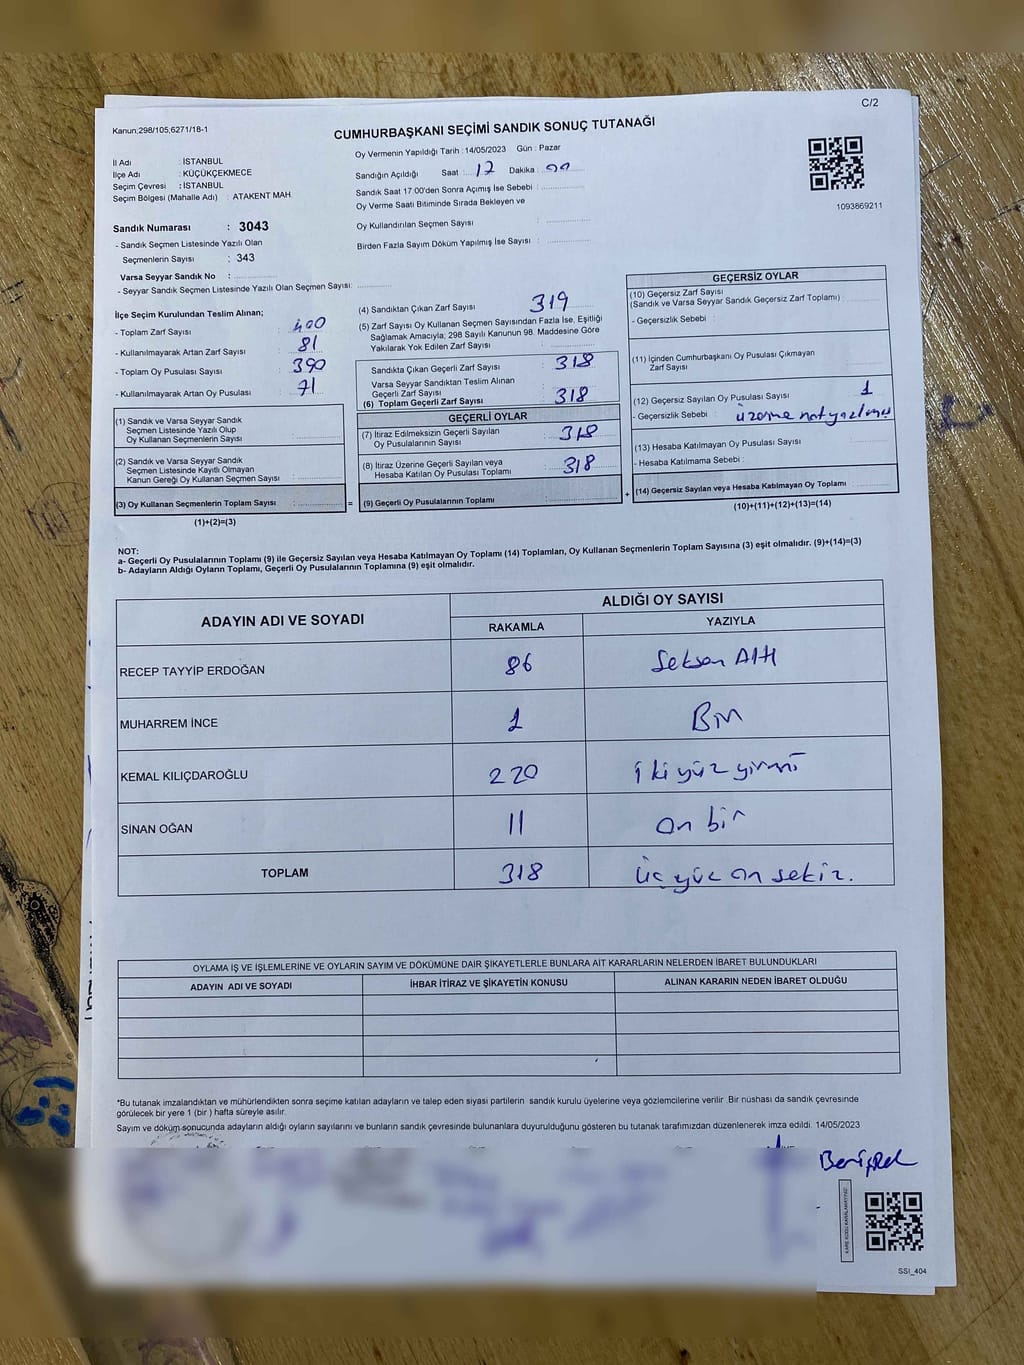 C/2
Kanun;298/105;6271/18-1
CUMHURBAŞKANI SEÇİMİ SANDIK SONUÇ TUTANAĞI
İl Adı : İSTANBUL
İlçe Adı : KÜÇÜKÇEKMECE
Seçim Çevresi : İSTANBUL
Seçim Bölgesi (Mahalle Adı) : ATAKENT MAH.
Oy Vermenin Yapıldığı Tarih : 14/05/2023 Gün : Pazar
Sandığın Açıldığı Saat : 17 Dakika :
Sandık Saat 17:00'den Sonra Açımış İse Sebebi :
Oy Verme Saati Bitiminde Sırada Bekleyen ve
Oy Kullandırılan Seçmen Sayısı :
Birden Fazla Sayım Döküm Yapılmış İse Sayısı :
1093869211
Sandık Numarası : 3043
- Sandık Seçmen Listesinde Yazılı Olan
Seçmenlerin Sayısı : 343
Varsa Seyyar Sandık No :
- Seyyar Sandık Seçmen Listesinde Yazılı Olan Seçmen Sayısı:
İlçe Seçim Kurulundan Teslim Alınan;
- Toplam Zarf Sayısı : 400
- Kullanılmayarak Artan Zarf Sayısı : 81
- Toplam Oy Pusulası Sayısı : 390
- Kullanılmayarak Artan Oy Pusulası : 71
(1) Sandık ve Varsa Seyyar Sandık
Seçmen Listesinde Yazılı Olup
Oy Kullanan Seçmenlerin Sayısı :
(2) Sandık ve Varsa Seyyar Sandık
Seçmen Listesinde Kayıtlı Olmayan
Kanun Gereği Oy Kullanan Seçmen Sayısı :
(3) Oy Kullanan Seçmenlerin Toplam Sayısı : =
(1)+(2)=(3)
(4) Sandıktan Çıkan Zarf Sayısı 319
(5) Zarf Sayısı Oy Kullanan Seçmen Sayısından Fazla İse, Eşitliği
Sağlamak Amacıyla; 298 Sayılı Kanunun 98. Maddesine Göre
Yakılarak Yok Edilen Zarf Sayısı :
Sandıkta Çıkan Geçerli Zarf Sayısı : 318
Varsa Seyyar Sandıktan Teslim Alınan
Geçerli Zarf Sayısı :
(6) Toplam Geçerli Zarf Sayısı : 318
GEÇERLİ OYLAR
(7) İtiraz Edilmeksizin Geçerli Sayılan
Oy Pusulalarının Sayısı : 318
(8) İtiraz Üzerine Geçerli Sayılan veya
Hesaba Katılan Oy Pusulası Toplamı : 318
(9) Geçerli Oy Pusulalarının Toplamı : +
GEÇERSİZ OYLAR
(10) Geçersiz Zarf Sayısı
(Sandık ve Varsa Seyyar Sandık Geçersiz Zarf Toplamı)
- Geçersizlik Sebebi :
(11) İçinden Cumhurbaşkanı Oy Pusulası Çıkmayan
Zarf Sayısı
(12) Geçersiz Sayılan Oy Pusulası Sayısı 1
- Geçersizlik Sebebi : üzerine not
(13) Hesaba Katılmayan Oy Pusulası Sayısı
- Hesaba Katılmama Sebebi :
(14) Geçersiz Sayılan veya Hesaba Katılmayan Oy Toplamı
(10)+(11)+(12)+(13)=(14)
NOT:
a- Geçerli Oy Pusulalarının Toplamı (9) ile Geçersiz Sayılan veya Hesaba Katılmayan Oy Toplamı (14) Toplamları, Oy Kullanan Seçmenlerin Toplam Sayısına (3) eşit olmalıdır. (9)+(14)=(3)
b- Adayların Aldığı Oyların Toplamı, Geçerli Oy Pusulalarının Toplamına (9) eşit olmalıdır.
ADAYIN ADI VE SOYADI
ALDIĞI OY SAYISI
RAKAMLA YAZIYLA
RECEP TAYYİP ERDOĞAN 86 Seksen Altı
MUHARREM İNCE 1 Bir
KEMAL KILIÇDAROĞLU 220 iki yüz yirmi
SİNAN OĞAN 11 on bir
TOPLAM 318 üç yüz on sekiz.
OYLAMA İŞ VE İŞLEMLERİNE VE OYLARIN SAYIM VE DÖKÜMÜNE DAİR ŞİKAYETLERLE BUNLARA AİT KARARLARIN NELERDEN İBARET BULUNDUKLARI
ADAYIN ADI VE SOYADI İHBAR İTİRAZ VE ŞİKAYETİN KONUSU ALINAN KARARIN NEDEN İBARET OLDUĞU
*Bu tutanak imzalandıktan ve mühürlendikten sonra seçime katılan adayların ve talep eden siyasi partilerin sandık kurulu üyelerine veya gözlemcilerine verilir. Bir nüshası da sandık çevresinde
görülecek bir yere 1 (bir ) hafta süreyle asılır.
Sayım ve döküm sonucunda adayların aldığı oyların sayılarını ve bunların sandık çevresinde bulunanlara duyurulduğunu gösteren bu tutanak tarafımızdan düzenlenerek imza edildi. 14/05/2023
SSI_404